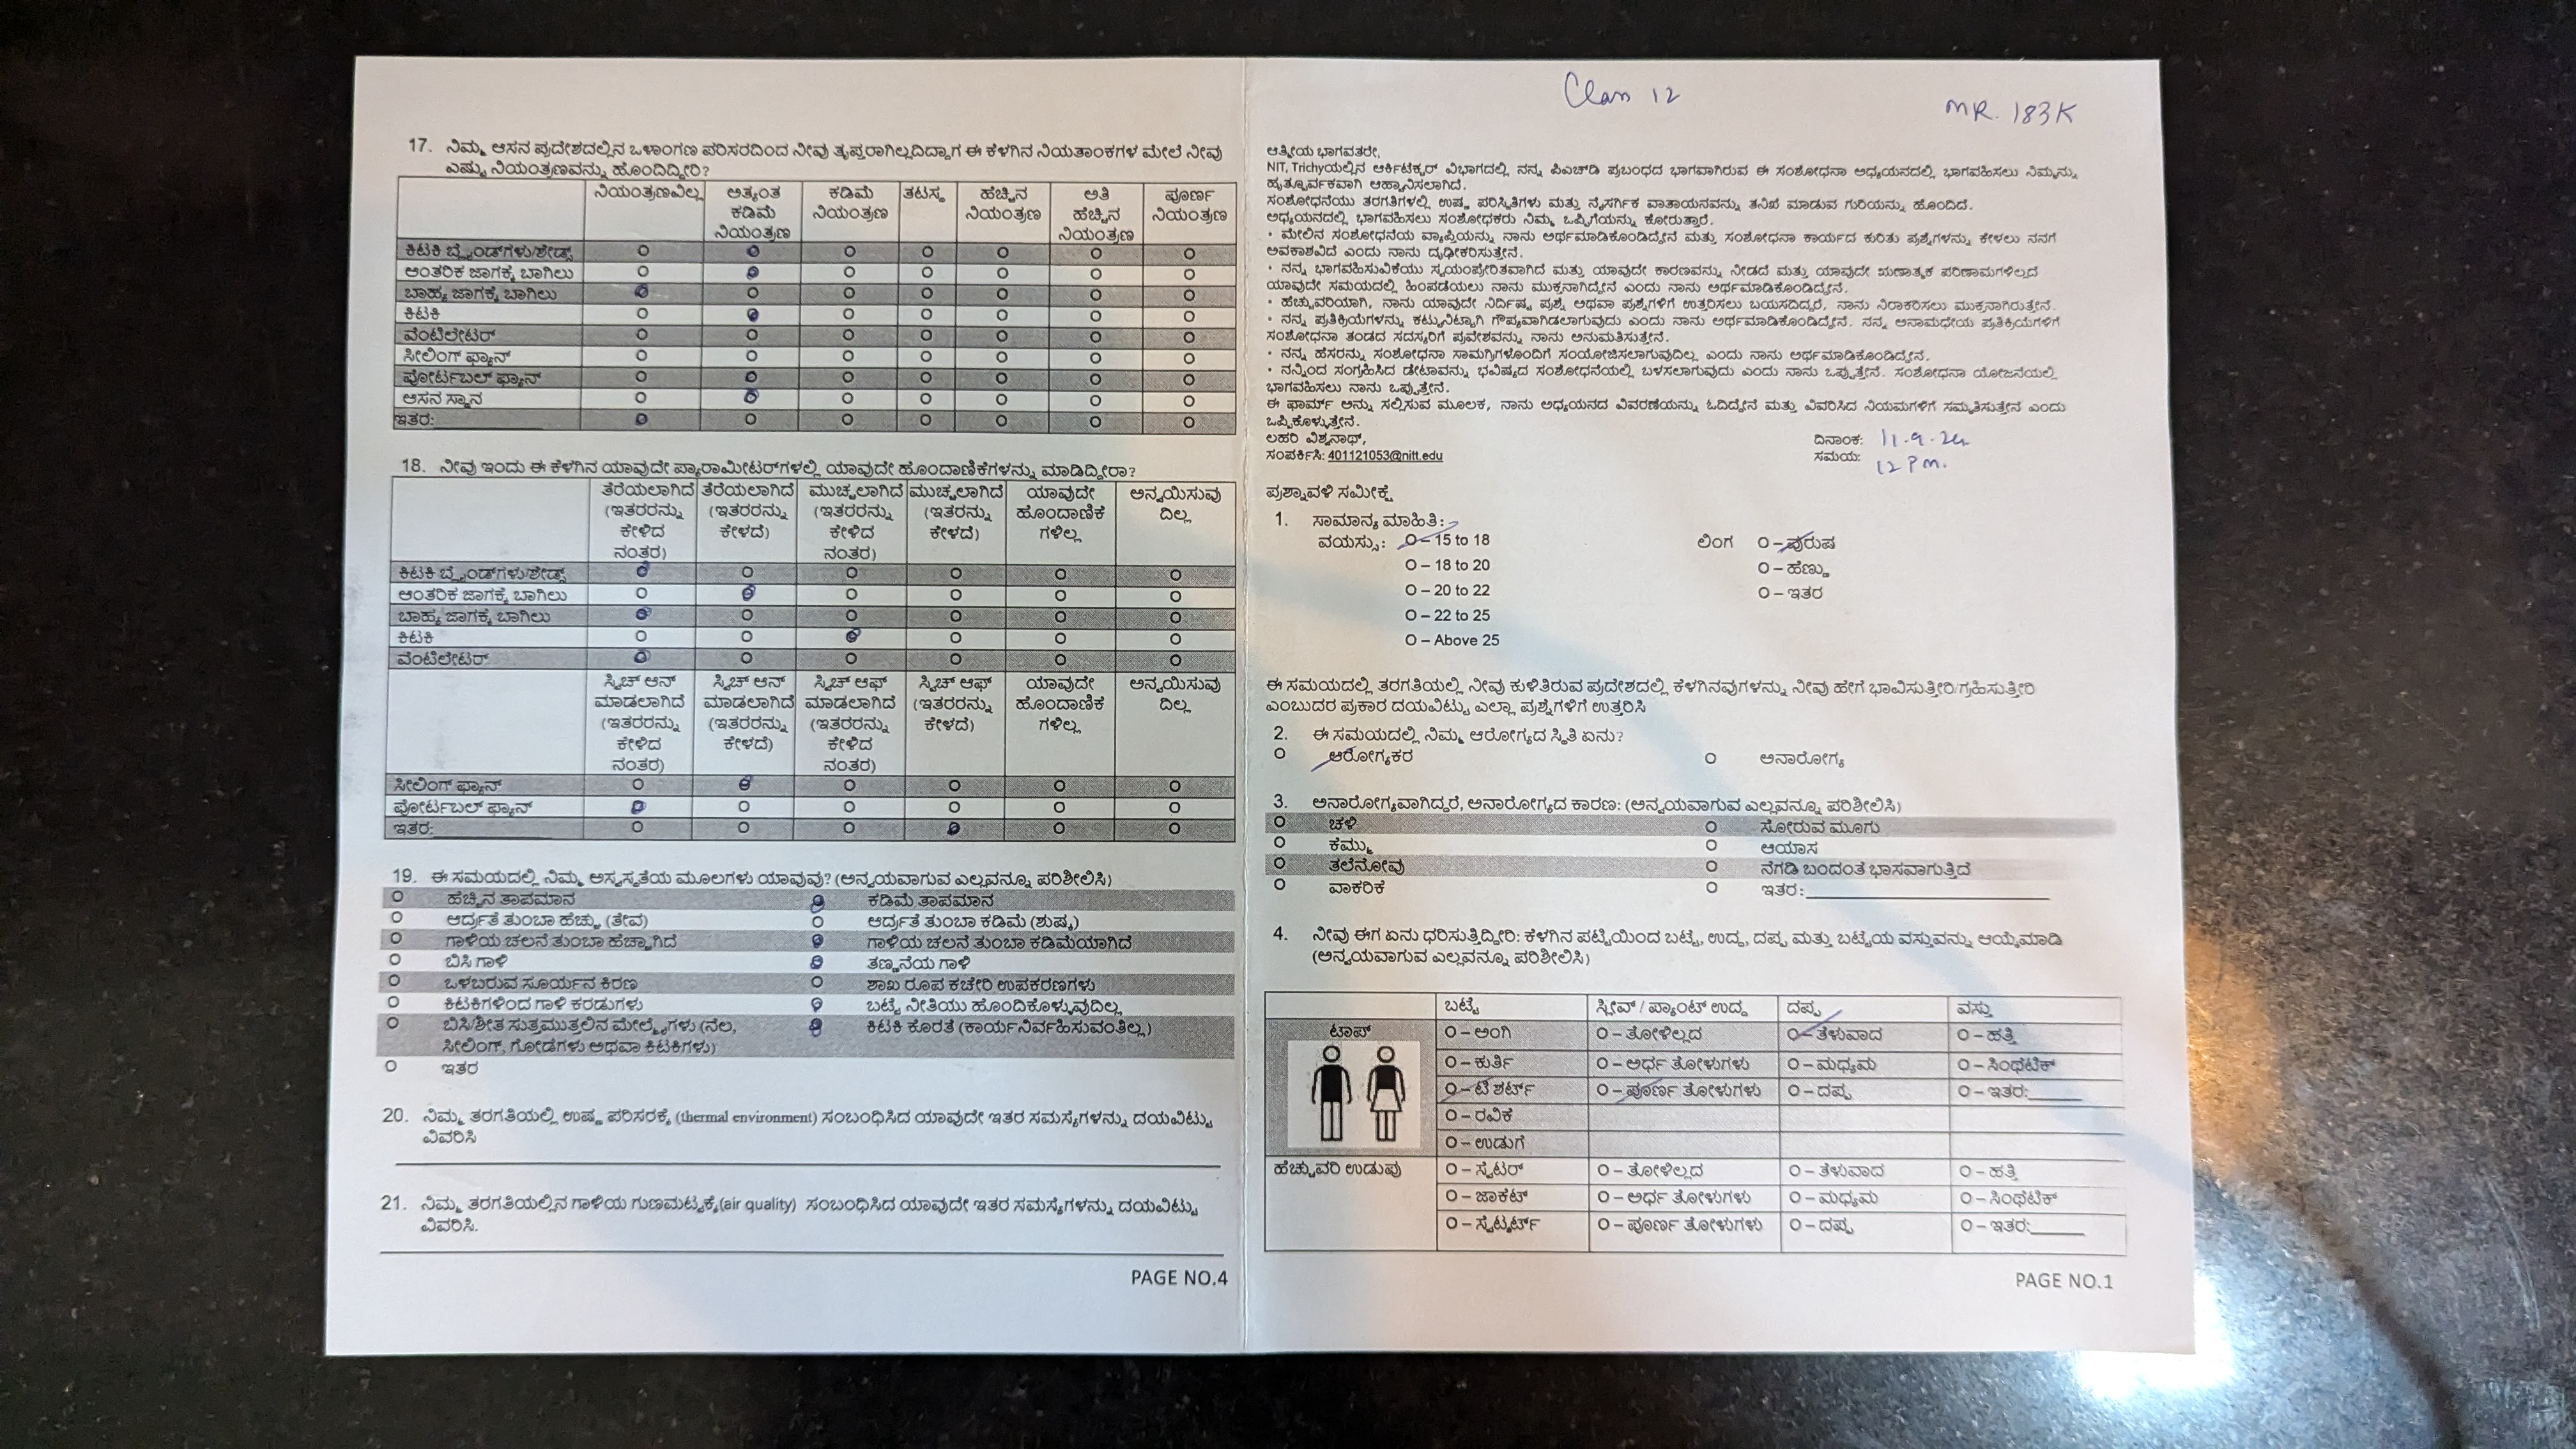 17. ನಿಮ್ಮ ಆಸನ ಪ್ರದೇಶದಲ್ಲಿನ ಒಳಾಂಗಣ ಪರಿಸರದಿಂದ ನೀವು ತೃಪ್ತರಾಗಿಲ್ಲದಿದ್ದಾಗ ಈ ಕೆಳಗಿನ ನಿಯತಾಂಕಗಳ ಮೇಲೆ ನೀವು
ಎಷ್ಟು ನಿಯಂತ್ರಣವನ್ನು ಹೊಂದಿದ್ದೀರಿ?
ನಿಯಂತ್ರಣವಿಲ್ಲ ಅತ್ಯಂತ ಕಡಿಮೆ ತಟಸ್ಥ ಹೆಚ್ಚಿನ ಅತಿ ಪೂರ್ಣ
ಕಡಿಮೆ ನಿಯಂತ್ರಣ ನಿಯಂತ್ರಣ ಹೆಚ್ಚಿನ ನಿಯಂತ್ರಣ
ನಿಯಂತ್ರಣ ನಿಯಂತ್ರಣ
ಕಿಟಕಿ ಬ್ಲೈಂಡ್‌ಗಳು/ಶೇಡ್ಸ್
ಆಂತರಿಕ ಜಾಗಕ್ಕೆ ಬಾಗಿಲು
ಬಾಹ್ಯ ಜಾಗಕ್ಕೆ ಬಾಗಿಲು
ಕಿಟಕಿ
ವೆಂಟಿಲೇಟರ್
ಸೀಲಿಂಗ್ ಫ್ಯಾನ್
ಪೋರ್ಟಬಲ್ ಫ್ಯಾನ್
ಆಸನ ಸ್ಥಾನ
ಇತರ:
18. ನೀವು ಇಂದು ಈ ಕೆಳಗಿನ ಯಾವುದೇ ಪ್ಯಾರಾಮೀಟರ್‌ಗಳಲ್ಲಿ ಯಾವುದೇ ಹೊಂದಾಣಿಕೆಗಳನ್ನು ಮಾಡಿದ್ದೀರಾ?
ತೆರೆಯಲಾಗಿದೆ ತೆರೆಯಲಾಗಿದೆ ಮುಚ್ಚಲಾಗಿದೆ ಮುಚ್ಚಲಾಗಿದೆ ಯಾವುದೇ ಅನ್ವಯಿಸುವು
(ಇತರರನ್ನು (ಇತರರನ್ನು (ಇತರರನ್ನು (ಇತರನ್ನು ಹೊಂದಾಣಿಕೆ ದಿಲ್ಲ
ಕೇಳಿದ ಕೇಳದೆ) ಕೇಳಿದ ಕೇಳದೆ) ಗಳಿಲ್ಲ
ನಂತರ) ನಂತರ)
ಕಿಟಕಿ ಬ್ಲೈಂಡ್‌ಗಳು/ಶೇಡ್ಸ್
ಆಂತರಿಕ ಜಾಗಕ್ಕೆ ಬಾಗಿಲು
ಬಾಹ್ಯ ಜಾಗಕ್ಕೆ ಬಾಗಿಲು
ಕಿಟಕಿ
ವೆಂಟಿಲೇಟರ್
ಸ್ವಿಚ್ ಆನ್ ಸ್ವಿಚ್ ಆನ್ ಸ್ವಿಚ್ ಆಫ್ ಸ್ವಿಚ್ ಆಫ್ ಯಾವುದೇ ಅನ್ವಯಿಸುವು
ಮಾಡಲಾಗಿದೆ ಮಾಡಲಾಗಿದೆ ಮಾಡಲಾಗಿದೆ (ಇತರರನ್ನು ಹೊಂದಾಣಿಕೆ ದಿಲ್ಲ
(ಇತರರನ್ನು (ಇತರರನ್ನು (ಇತರರನ್ನು ಕೇಳದೆ) ಗಳಿಲ್ಲ
ಕೇಳಿದ ಕೇಳದೆ) ಕೇಳಿದ
ನಂತರ) ನಂತರ)
ಸೀಲಿಂಗ್ ಫ್ಯಾನ್
ಪೋರ್ಟಬಲ್ ಫ್ಯಾನ್
ಇತರ:
19. ಈ ಸಮಯದಲ್ಲಿ ನಿಮ್ಮ ಅಸ್ವಸ್ಥತೆಯ ಮೂಲಗಳು ಯಾವುವು? (ಅನ್ವಯವಾಗುವ ಎಲ್ಲವನ್ನೂ ಪರಿಶೀಲಿಸಿ)
ಹೆಚ್ಚಿನ ತಾಪಮಾನ ಕಡಿಮೆ ತಾಪಮಾನ
ಆರ್ದ್ರತೆ ತುಂಬಾ ಹೆಚ್ಚು (ತೇವ) ಆರ್ದ್ರತೆ ತುಂಬಾ ಕಡಿಮೆ (ಶುಷ್ಕ)
ಗಾಳಿಯ ಚಲನೆ ತುಂಬಾ ಹೆಚ್ಚಾಗಿದೆ ಗಾಳಿಯ ಚಲನೆ ತುಂಬಾ ಕಡಿಮೆಯಾಗಿದೆ
ಬಿಸಿ ಗಾಳಿ ತಣ್ಣನೆಯ ಗಾಳಿ
ಒಳಬರುವ ಸೂರ್ಯನ ಕಿರಣ ಶಾಖ ರೂಪ ಕಚೇರಿ ಉಪಕರಣಗಳು
ಕಿಟಕಿಗಳಿಂದ ಗಾಳಿ ಕರಡುಗಳು ಬಟ್ಟೆ ನೀತಿಯು ಹೊಂದಿಕೊಳ್ಳುವುದಿಲ್ಲ
ಬಿಸಿ/ಶೀತ ಸುತ್ತಮುತ್ತಲಿನ ಮೇಲ್ಮೈಗಳು (ನೆಲ, ಕಿಟಕಿ ಕೊರತೆ (ಕಾರ್ಯನಿರ್ವಹಿಸುವಂತಿಲ್ಲ)
ಸೀಲಿಂಗ್, ಗೋಡೆಗಳು ಅಥವಾ ಕಿಟಕಿಗಳು)
ಇತರ
20. ನಿಮ್ಮ ತರಗತಿಯಲ್ಲಿ ಉಷ್ಣ ಪರಿಸರಕ್ಕೆ (thermal environment) ಸಂಬಂಧಿಸಿದ ಯಾವುದೇ ಇತರ ಸಮಸ್ಯೆಗಳನ್ನು ದಯವಿಟ್ಟು
ವಿವರಿಸಿ
21. ನಿಮ್ಮ ತರಗತಿಯಲ್ಲಿನ ಗಾಳಿಯ ಗುಣಮಟ್ಟಕ್ಕೆ(air quality) ಸಂಬಂಧಿಸಿದ ಯಾವುದೇ ಇತರ ಸಮಸ್ಯೆಗಳನ್ನು ದಯವಿಟ್ಟು
ವಿವರಿಸಿ.
PAGE NO.4
Class 12
MR. 183K
ಆತ್ಮೀಯ ಭಾಗವತರೇ,
NIT, Trichyಯಲ್ಲಿನ ಆರ್ಕಿಟೆಕ್ಚರ್ ವಿಭಾಗದಲ್ಲಿ ನನ್ನ ಪಿಎಚ್‌ಡಿ ಪ್ರಬಂಧದ ಭಾಗವಾಗಿರುವ ಈ ಸಂಶೋಧನಾ ಅಧ್ಯಯನದಲ್ಲಿ ಭಾಗವಹಿಸಲು ನಿಮ್ಮನ್ನು
ಹೃತ್ಪೂರ್ವಕವಾಗಿ ಆಹ್ವಾನಿಸಲಾಗಿದೆ.
ಸಂಶೋಧನೆಯು ತರಗತಿಗಳಲ್ಲಿ ಉಷ್ಣ ಪರಿಸ್ಥಿತಿಗಳು ಮತ್ತು ನೈಸರ್ಗಿಕ ವಾತಾಯನವನ್ನು ತನಿಖೆ ಮಾಡುವ ಗುರಿಯನ್ನು ಹೊಂದಿದೆ.
ಅಧ್ಯಯನದಲ್ಲಿ ಭಾಗವಹಿಸಲು ಸಂಶೋಧಕರು ನಿಮ್ಮ ಒಪ್ಪಿಗೆಯನ್ನು ಕೋರುತ್ತಾರೆ.
• ಮೇಲಿನ ಸಂಶೋಧನೆಯ ವ್ಯಾಪ್ತಿಯನ್ನು ನಾನು ಅರ್ಥಮಾಡಿಕೊಂಡಿದ್ದೇನೆ ಮತ್ತು ಸಂಶೋಧನಾ ಕಾರ್ಯದ ಕುರಿತು ಪ್ರಶ್ನೆಗಳನ್ನು ಕೇಳಲು ನನಗೆ
ಅವಕಾಶವಿದೆ ಎಂದು ನಾನು ದೃಢೀಕರಿಸುತ್ತೇನೆ.
• ನನ್ನ ಭಾಗವಹಿಸುವಿಕೆಯು ಸ್ವಯಂಪ್ರೇರಿತವಾಗಿದೆ ಮತ್ತು ಯಾವುದೇ ಕಾರಣವನ್ನು ನೀಡದೆ ಮತ್ತು ಯಾವುದೇ ಋಣಾತ್ಮಕ ಪರಿಣಾಮಗಳಿಲ್ಲದೆ
ಯಾವುದೇ ಸಮಯದಲ್ಲಿ ಹಿಂಪಡೆಯಲು ನಾನು ಮುಕ್ತನಾಗಿದ್ದೇನೆ ಎಂದು ನಾನು ಅರ್ಥಮಾಡಿಕೊಂಡಿದ್ದೇನೆ.
• ಹೆಚ್ಚುವರಿಯಾಗಿ, ನಾನು ಯಾವುದೇ ನಿರ್ದಿಷ್ಟ ಪ್ರಶ್ನೆ ಅಥವಾ ಪ್ರಶ್ನೆಗಳಿಗೆ ಉತ್ತರಿಸಲು ಬಯಸದಿದ್ದರೆ, ನಾನು ನಿರಾಕರಿಸಲು ಮುಕ್ತನಾಗಿರುತ್ತೇನೆ.
• ನನ್ನ ಪ್ರತಿಕ್ರಿಯೆಗಳನ್ನು ಕಟ್ಟುನಿಟ್ಟಾಗಿ ಗೌಪ್ಯವಾಗಿಡಲಾಗುವುದು ಎಂದು ನಾನು ಅರ್ಥಮಾಡಿಕೊಂಡಿದ್ದೇನೆ. ನನ್ನ ಅನಾಮಧೇಯ ಪ್ರತಿಕ್ರಿಯೆಗಳಿಗೆ
ಸಂಶೋಧನಾ ತಂಡದ ಸದಸ್ಯರಿಗೆ ಪ್ರವೇಶವನ್ನು ನಾನು ಅನುಮತಿಸುತ್ತೇನೆ.
• ನನ್ನ ಹೆಸರನ್ನು ಸಂಶೋಧನಾ ಸಾಮಗ್ರಿಗಳೊಂದಿಗೆ ಸಂಯೋಜಿಸಲಾಗುವುದಿಲ್ಲ ಎಂದು ನಾನು ಅರ್ಥಮಾಡಿಕೊಂಡಿದ್ದೇನೆ.
• ನನ್ನಿಂದ ಸಂಗ್ರಹಿಸಿದ ಡೇಟಾವನ್ನು ಭವಿಷ್ಯದ ಸಂಶೋಧನೆಯಲ್ಲಿ ಬಳಸಲಾಗುವುದು ಎಂದು ನಾನು ಒಪ್ಪುತ್ತೇನೆ. ಸಂಶೋಧನಾ ಯೋಜನೆಯಲ್ಲಿ
ಭಾಗವಹಿಸಲು ನಾನು ಒಪ್ಪುತ್ತೇನೆ.
ಈ ಫಾರ್ಮ್ ಅನ್ನು ಸಲ್ಲಿಸುವ ಮೂಲಕ, ನಾನು ಅಧ್ಯಯನದ ವಿವರಣೆಯನ್ನು ಓದಿದ್ದೇನೆ ಮತ್ತು ವಿವರಿಸಿದ ನಿಯಮಗಳಿಗೆ ಸಮ್ಮತಿಸುತ್ತೇನೆ ಎಂದು
ಒಪ್ಪಿಕೊಳ್ಳುತ್ತೇನೆ.
ಲಹರಿ ವಿಶ್ವನಾಥ್,
ದಿನಾಂಕ: 11.9.24
ಸಂಪರ್ಕಿಸಿ: 401121053@nitt.edu
ಸಮಯ: 12 PM.
ಪ್ರಶ್ನಾವಳಿ ಸಮೀಕ್ಷೆ
1. ಸಾಮಾನ್ಯ ಮಾಹಿತಿ:
ವಯಸ್ಸು: O – 15 to 18 ಲಿಂಗ O – ಪುರುಷ
O – 18 to 20 O – ಹೆಣ್ಣು
O – 20 to 22 O – ಇತರ
O – 22 to 25
O – Above 25
ಈ ಸಮಯದಲ್ಲಿ ತರಗತಿಯಲ್ಲಿ ನೀವು ಕುಳಿತಿರುವ ಪ್ರದೇಶದಲ್ಲಿ ಕೆಳಗಿನವುಗಳನ್ನು ನೀವು ಹೇಗೆ ಭಾವಿಸುತ್ತೀರಿ/ಗ್ರಹಿಸುತ್ತೀರಿ
ಎಂಬುದರ ಪ್ರಕಾರ ದಯವಿಟ್ಟು ಎಲ್ಲಾ ಪ್ರಶ್ನೆಗಳಿಗೆ ಉತ್ತರಿಸಿ
2. ಈ ಸಮಯದಲ್ಲಿ ನಿಮ್ಮ ಆರೋಗ್ಯದ ಸ್ಥಿತಿ ಏನು?
O ಆರೋಗ್ಯಕರ O ಅನಾರೋಗ್ಯ
3. ಅನಾರೋಗ್ಯವಾಗಿದ್ದರೆ, ಅನಾರೋಗ್ಯದ ಕಾರಣ: (ಅನ್ವಯವಾಗುವ ಎಲ್ಲವನ್ನೂ ಪರಿಶೀಲಿಸಿ)
O ಚಳಿ O ಸೋರುವ ಮೂಗು
O ಕೆಮ್ಮು O ಆಯಾಸ
O ತಲೆನೋವು O ನೆಗಡಿ ಬಂದಂತೆ ಭಾಸವಾಗುತ್ತಿದೆ
O ವಾಕರಿಕೆ O ಇತರ:
4. ನೀವು ಈಗ ಏನು ಧರಿಸುತ್ತಿದ್ದೀರಿ: ಕೆಳಗಿನ ಪಟ್ಟಿಯಿಂದ ಬಟ್ಟೆ, ಉದ್ದ, ದಪ್ಪ ಮತ್ತು ಬಟ್ಟೆಯ ವಸ್ತುವನ್ನು ಆಯ್ಕೆಮಾಡಿ
(ಅನ್ವಯವಾಗುವ ಎಲ್ಲವನ್ನೂ ಪರಿಶೀಲಿಸಿ)
ಬಟ್ಟೆ ಸ್ಲೀವ್ / ಪ್ಯಾಂಟ್ ಉದ್ದ ದಪ್ಪ ವಸ್ತು
ಟಾಪ್ O – ಅಂಗಿ O – ತೋಳಿಲ್ಲದ O – ತೆಳುವಾದ O – ಹತ್ತಿ
O – ಕುರ್ತಿ O – ಅರ್ಧ ತೋಳುಗಳು O – ಮಧ್ಯಮ O – ಸಿಂಥೆಟಿಕ್
O – ಟಿ ಶರ್ಟ್ O – ಪೂರ್ಣ ತೋಳುಗಳು O – ದಪ್ಪ O – ಇತರ:
O – ರವಿಕೆ
O – ಉಡುಗೆ
ಹೆಚ್ಚುವರಿ ಉಡುಪು O – ಸ್ವೆಟರ್ O – ತೋಳಿಲ್ಲದ O – ತೆಳುವಾದ O – ಹತ್ತಿ
O – ಜಾಕೆಟ್ O – ಅರ್ಧ ತೋಳುಗಳು O – ಮಧ್ಯಮ O – ಸಿಂಥೆಟಿಕ್
O – ಸ್ವೆಟ್ಶರ್ಟ್ O – ಪೂರ್ಣ ತೋಳುಗಳು O – ದಪ್ಪ O – ಇತರ:
PAGE NO.1